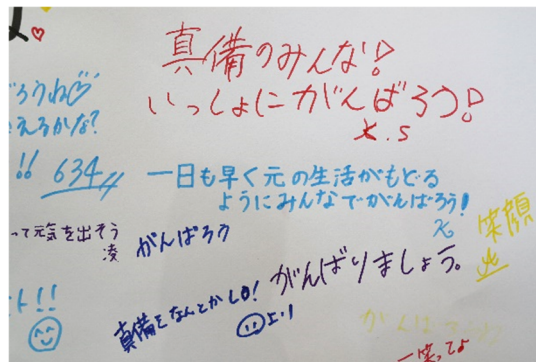 真備のみんな!
いっしょにがんばろう!
K.S
ろうね♡
えるかな?
!! 634
一日も早く元の生活がもどる
ようにみんなでがんばろう!
って元気を出そう
凌
がんばろう
笑顔
がんばりましょう。
ト!!
真備をなんとかしろ!
より
がんばろう
笑ってよ